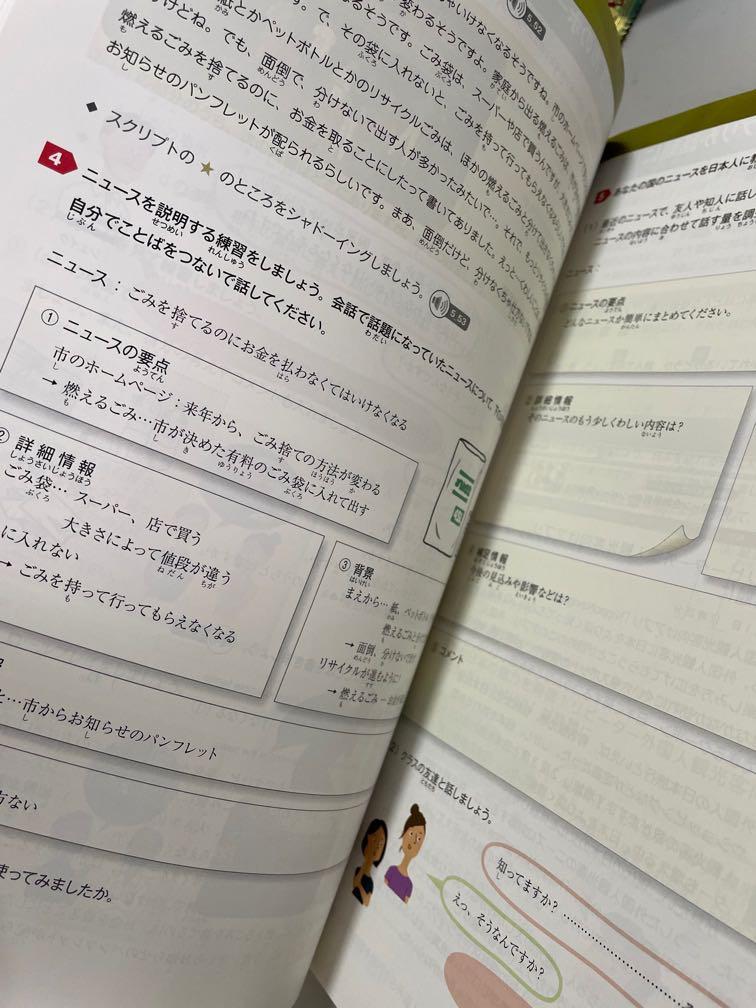 ゃいけなくなるそうですね。市のホームペー
変わるそうですよ。家庭から出る燃えるごみは、
5.52
そうです。ごみ袋は、スーパーや店で買うんですが、
で、その袋に入れないと、ごみを持って行ってもらえなくなる
紙とかペットボトルとかのリサイクルごみは、ほかの燃えるごみと分けて
けどね。でも、面倒で、分けないで出す人が多かったみたいで…。それで、もっと
燃えるごみを捨てるのに、お金を取ることにしたって書いてありました。えっと、
お知らせのパンフレットが配られるらしいです。まあ、面倒だけど、分けなくちゃ
◆ スクリプトの ★ のところをシャドーイングしましょう。
5.53
4 ニュースを説明する練習をしましょう。会話で話題になっていたニュースについて、
自分でことばをつないで話してください。
ニュース：ごみを捨てるのにお金を払わなくてはいけなくなる
① ニュースの要点
市のホームページ：来年から、ごみ捨ての方法が変わる
→ 燃えるごみ…市が決めた有料のごみ袋に入れて出す
② 詳細情報
ごみ袋… スーパー、店で買う
大きさによって値段が違う
に入れない
→ ごみを持って行ってもらえなくなる
③ 背景
まえから… 紙、ペットボトル
燃えるごみと
→ 面倒、分けないで
リサイクルが進むように
→ 燃えるごみ
…市からお知らせのパンフレット
方ない
使ってみましたか。
5 あなたの国のニュースを日本人に
(1) 最近のニュースで、友人や知人に話し
ニュースの内容に合わせて話す量を調
ニュース：
① ニュースの要点
どんなニュースか簡単にまとめてください。
② 詳細情報
そのニュースのもう少しくわしい内容は？
補足情報
今後の見込みや影響などは？
コメント
(2) クラスの友達と話しましょう。
知ってますか？
えっ、そうなんですか？